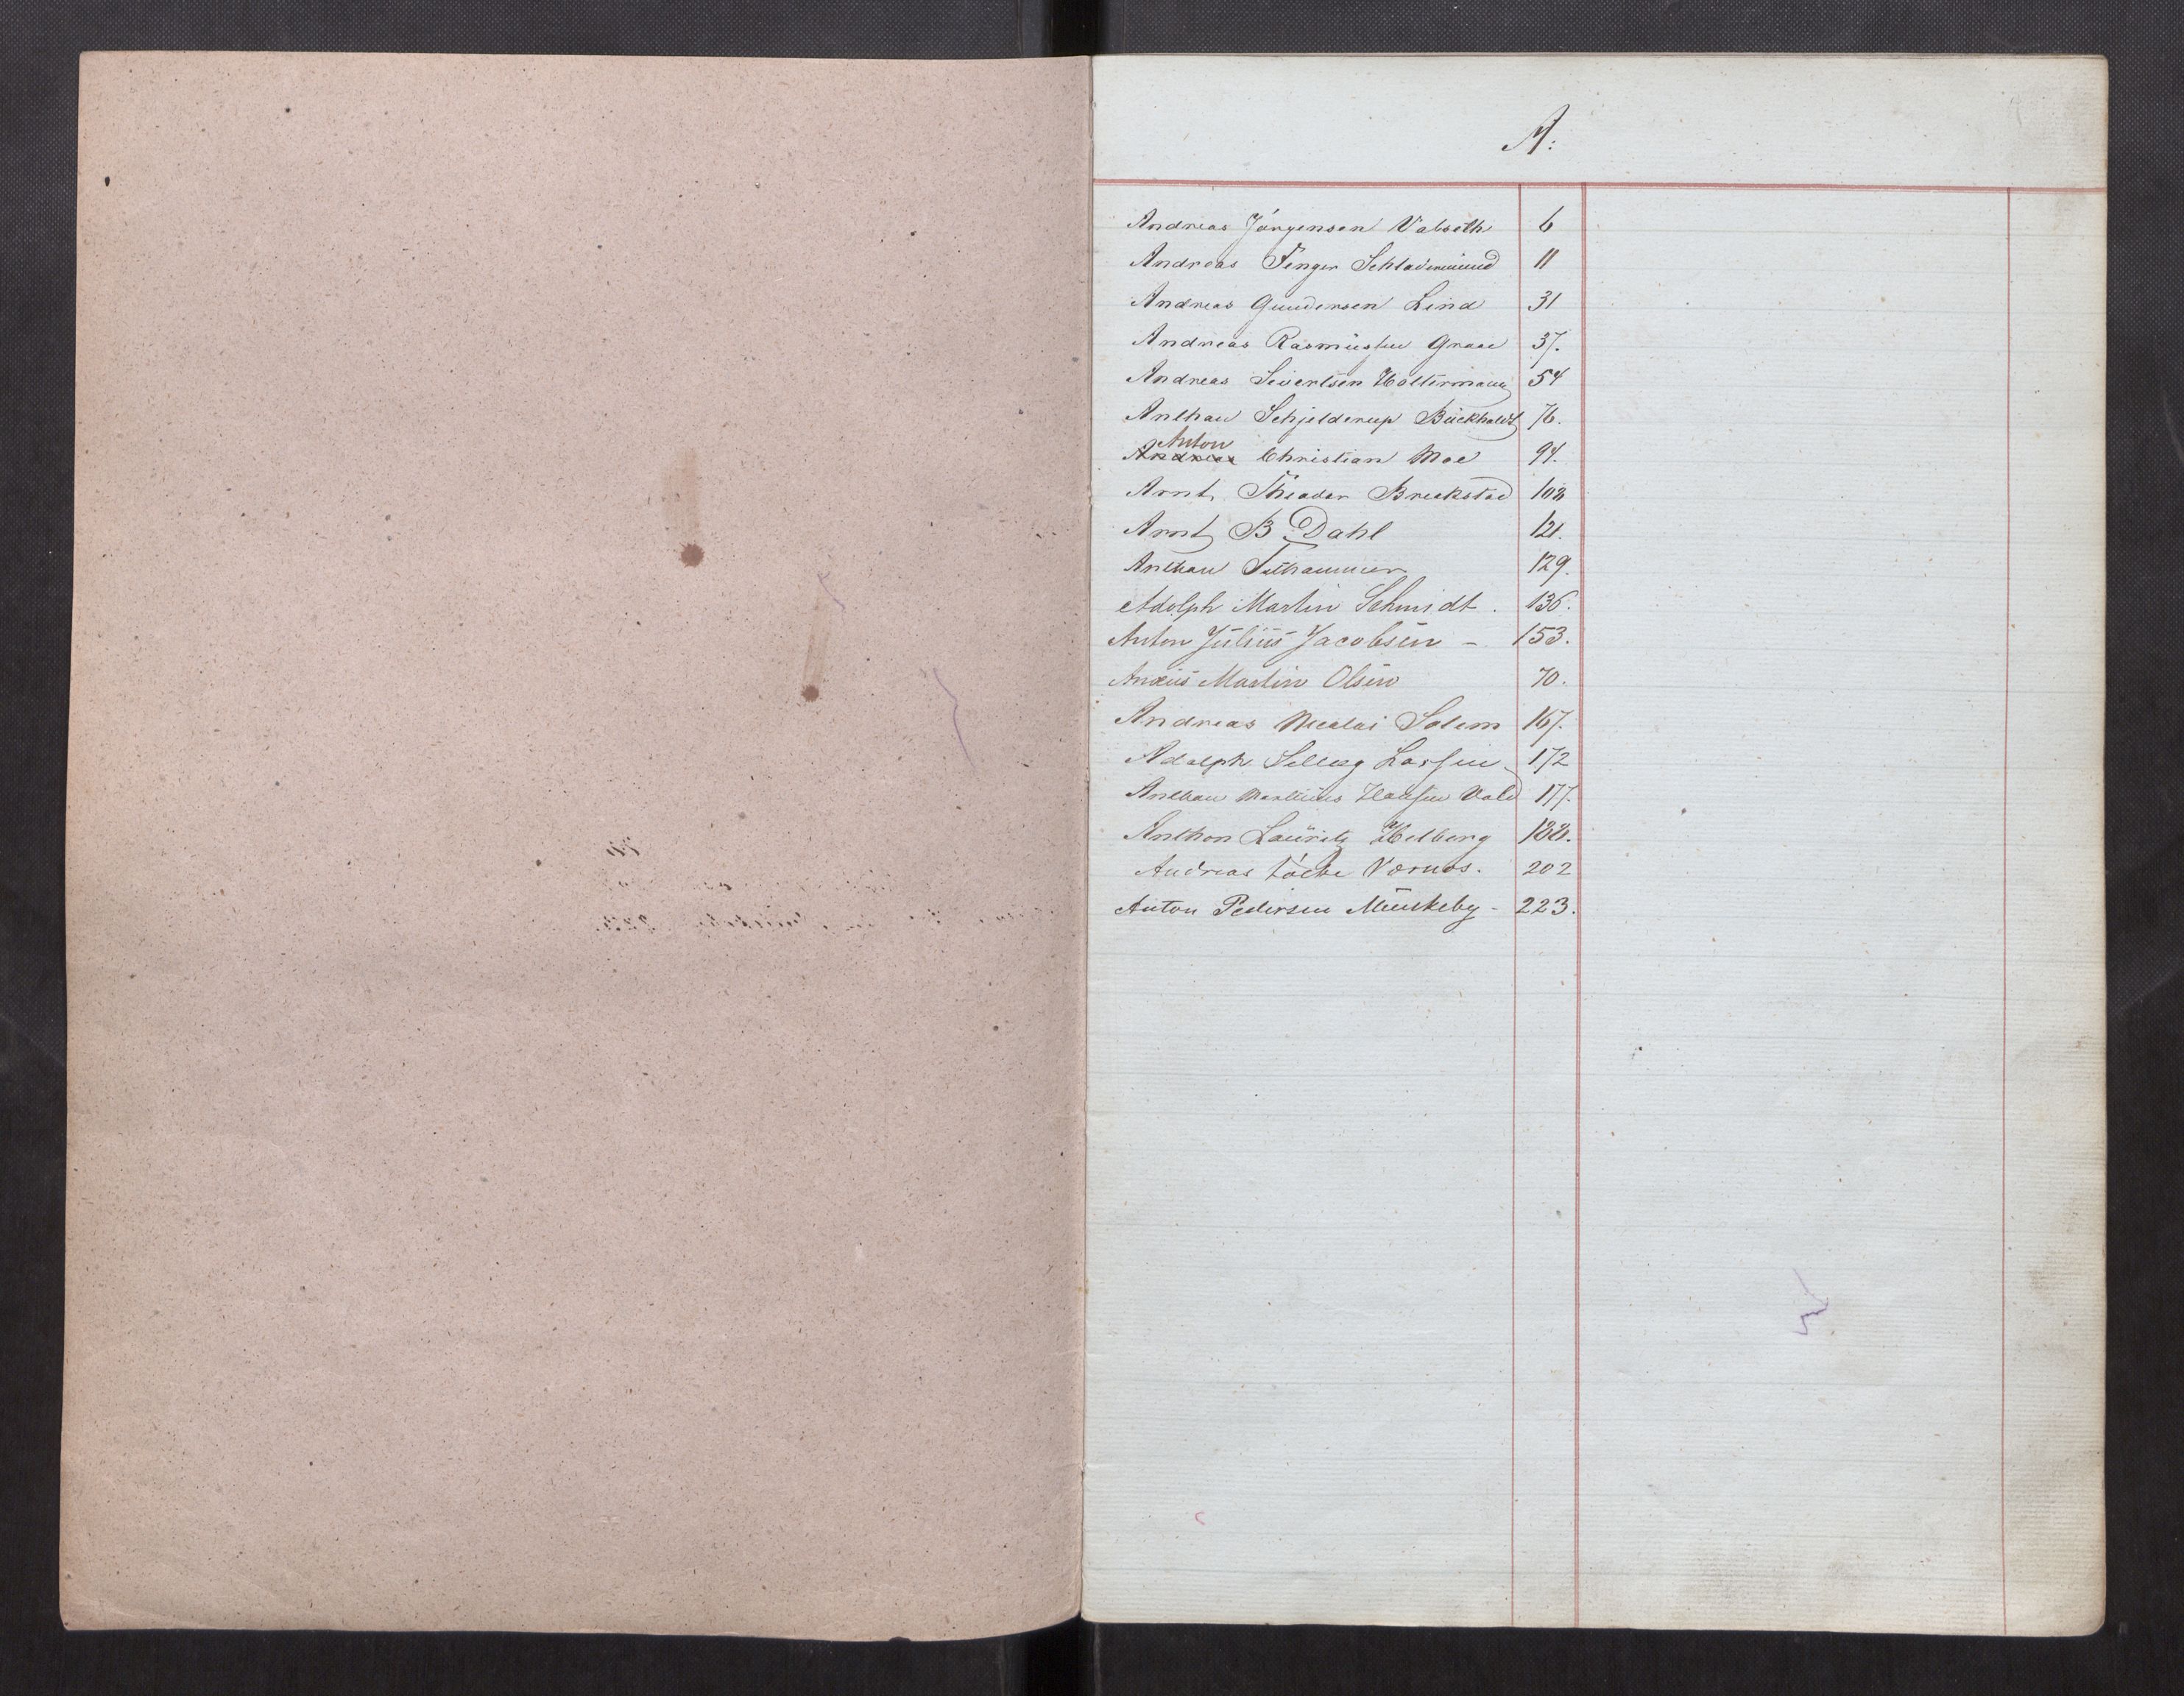 A:
Andreas Jörgensen Valseth 6
Andreas Fenger Schlademünd 11
Andreas Gundersen Lind 31
Andreas Rasmüssen Graae 37.
Andreas Sivertsen Holtermann 54
Anthon Schjelderup Bückholdt 76.
Anton
Andreas Christian Moe 94.
Arnt Theodor Breckstad 108
Arnt B. Dahl 121.
Anthon 129.
Adolph Martin Schmidt. 136.
Anton Jülius Jacobsen - 153.
Martin Olsen 70.
Andreas Nicolai Solem 167.
Adolph Sellæg Lossin 172
Anthon Martinus Hansen Vold 177.
Anthon Laüritz Helberg 188.
Andreas Værnes. 202
Anton Pedersen Münkeby - 223.